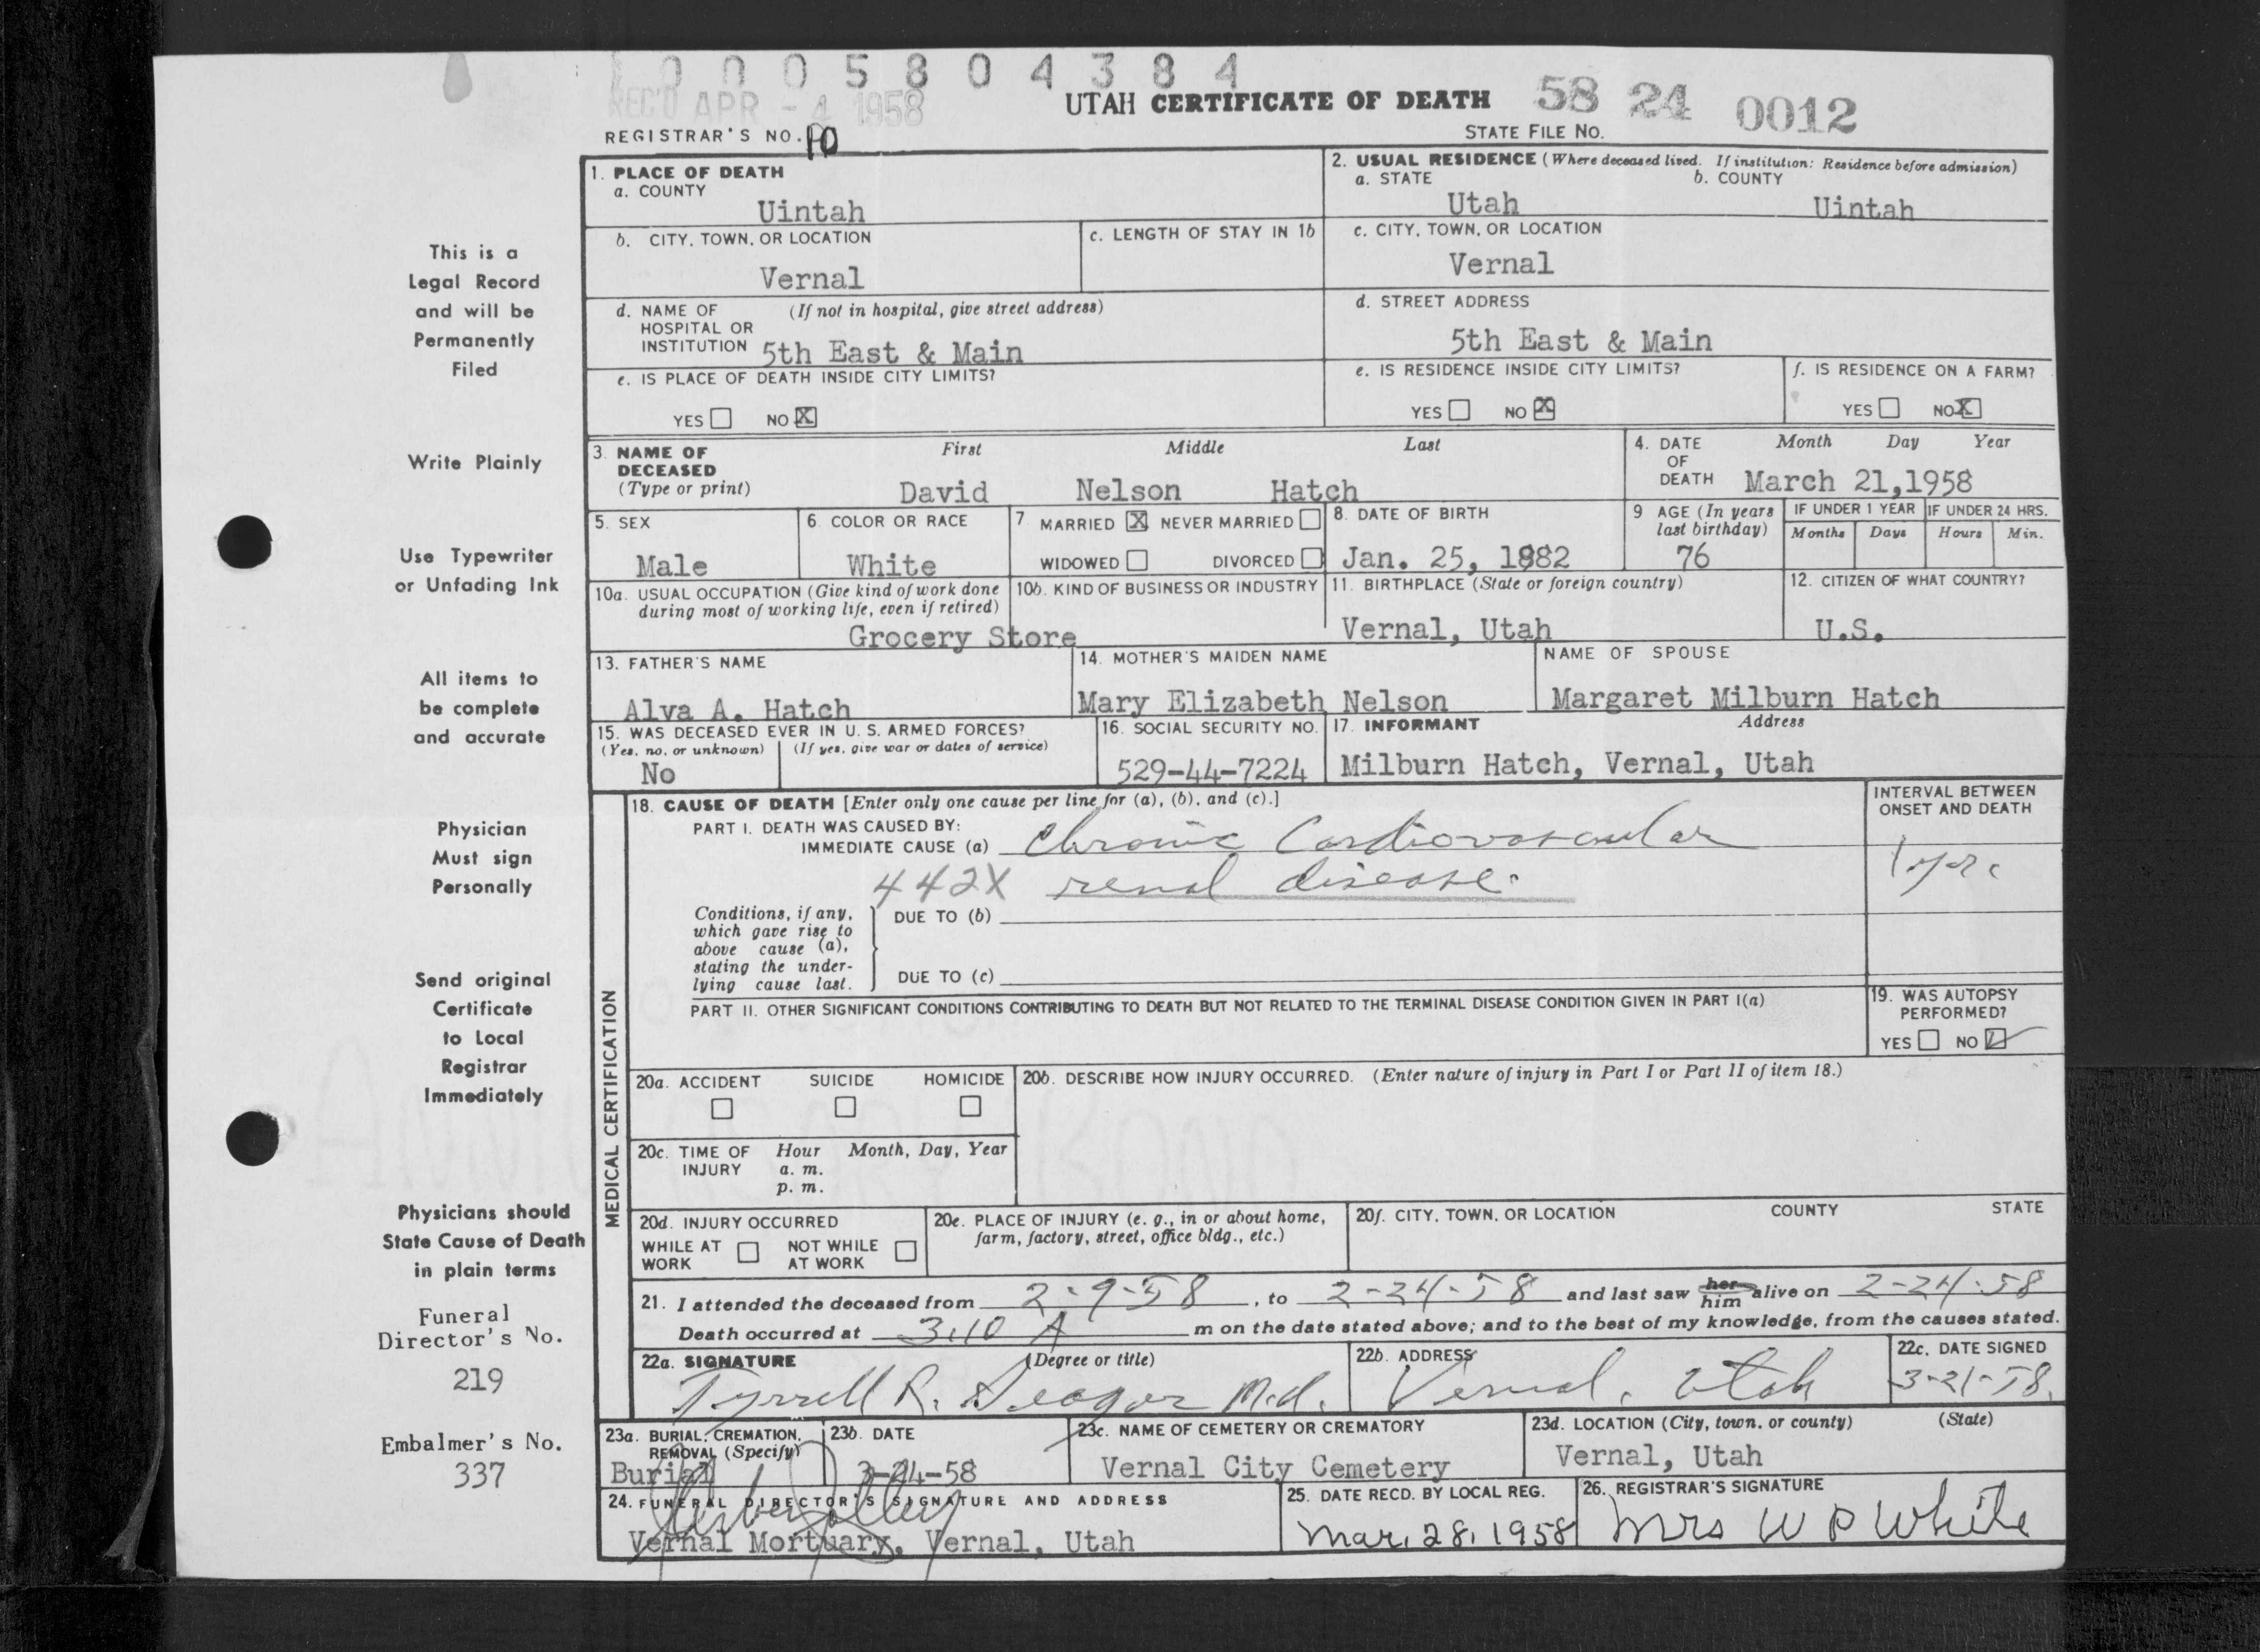 0005804384
REC'D APR - 4 1958
UTAH CERTIFICATE OF DEATH 58 24 0012
REGISTRAR'S NO. 10
STATE FILE NO.
This is a
Legal Record
and will be
Permanently
Filed
Write Plainly
Use Typewriter
or Unfading Ink
All items to
be complete
and accurate
Physician
Must sign
Personally
Send original
Certificate
to Local
Registrar
Immediately
Physicians should
State Cause of Death
in plain terms
Funeral
Director's No.
219
Embalmer's No.
337
1. PLACE OF DEATH
a. COUNTY
Uintah
2. USUAL RESIDENCE (Where deceased lived. If institution: Residence before admission)
a. STATE b. COUNTY
Utah Uintah
b. CITY, TOWN, OR LOCATION
Vernal
c. LENGTH OF STAY IN 1b
c. CITY, TOWN, OR LOCATION
Vernal
d. NAME OF (If not in hospital, give street address)
HOSPITAL OR
INSTITUTION 5th East & Main
d. STREET ADDRESS
5th East & Main
e. IS PLACE OF DEATH INSIDE CITY LIMITS?
YES NO X
e. IS RESIDENCE INSIDE CITY LIMITS?
YES NO X
f. IS RESIDENCE ON A FARM?
YES NO X
3. NAME OF First Middle Last
DECEASED
(Type or print) David Nelson Hatch
4. DATE Month Day Year
OF
DEATH March 21,1958
5. SEX
Male
6. COLOR OR RACE
White
7. MARRIED X NEVER MARRIED
WIDOWED DIVORCED
8. DATE OF BIRTH
Jan. 25, 1882
9 AGE (In years
last birthday)
76
IF UNDER 1 YEAR IF UNDER 24 HRS.
Months Days Hours Min.
10a. USUAL OCCUPATION (Give kind of work done
during most of working life, even if retired)
Grocery Store
10b. KIND OF BUSINESS OR INDUSTRY
11. BIRTHPLACE (State or foreign country)
Vernal, Utah
12. CITIZEN OF WHAT COUNTRY?
U.S.
13. FATHER'S NAME
Alva A. Hatch
14. MOTHER'S MAIDEN NAME
Mary Elizabeth Nelson
NAME OF SPOUSE
Margaret Milburn Hatch
15. WAS DECEASED EVER IN U. S. ARMED FORCES?
(Yes, no, or unknown) (If yes, give war or dates of service)
No
16. SOCIAL SECURITY NO.
529-44-7224
17. INFORMANT Address
Milburn Hatch, Vernal, Utah
MEDICAL CERTIFICATION
18. CAUSE OF DEATH [Enter only one cause per line for (a), (b), and (c).]
PART I. DEATH WAS CAUSED BY:
IMMEDIATE CAUSE (a) Chronic Cardiovascular
442X renal disease.
INTERVAL BETWEEN
ONSET AND DEATH
Conditions, if any,
which gave rise to
above cause (a),
stating the under-
lying cause last.
DUE TO (b)
DUE TO (c)
PART II. OTHER SIGNIFICANT CONDITIONS CONTRIBUTING TO DEATH BUT NOT RELATED TO THE TERMINAL DISEASE CONDITION GIVEN IN PART I(a)
19. WAS AUTOPSY
PERFORMED?
YES NO
20a. ACCIDENT SUICIDE HOMICIDE
20b. DESCRIBE HOW INJURY OCCURRED. (Enter nature of injury in Part I or Part II of item 18.)
20c. TIME OF Hour Month, Day, Year
INJURY a. m.
p. m.
20d. INJURY OCCURRED
WHILE AT NOT WHILE
WORK AT WORK
20e. PLACE OF INJURY (e. g., in or about home,
farm, factory, street, office bldg., etc.)
20f. CITY, TOWN, OR LOCATION COUNTY STATE
21. I attended the deceased from 2-9-58, to 2-24-58 and last saw her him alive on 2-24-58
Death occurred at 3:10 A m on the date stated above; and to the best of my knowledge, from the causes stated.
22a. SIGNATURE (Degree or title)
Tyrrell R. Seager M.d.
22b. ADDRESS
Vernal, Utah
22c. DATE SIGNED
3-21-58.
23a. BURIAL, CREMATION,
REMOVAL (Specify)
Burial
23b. DATE
3-24-58
23c. NAME OF CEMETERY OR CREMATORY
Vernal City Cemetery
23d. LOCATION (City, town, or county) (State)
Vernal, Utah
24. FUNERAL DIRECTOR'S SIGNATURE AND ADDRESS
Vernal Mortuary, Vernal, Utah
25. DATE RECD. BY LOCAL REG.
Mar. 28, 1958
26. REGISTRAR'S SIGNATURE
Mrs W P White